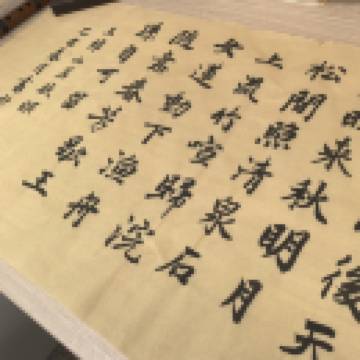 後天
晚來秋明月
松間照清泉石
上流竹喧歸浣
女蓮動下漁舟
隨意春芳歇王
孫自可留
王維山居秋暝